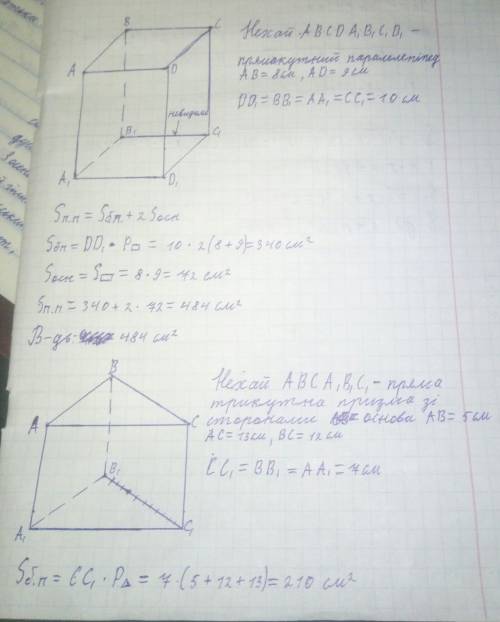 B C
A D
B₁ C₁
невидима
A₁ D₁
Нехай ABCDA₁B₁C₁D₁ –
прямокутний паралелепіпед
AB = 8см, AD = 9см
DD₁ = BB₁ = AA₁ = CC₁ = 10 см
Sп.п = Sбп + 2Sосн
Sбп = DD₁ · P▭ = 10 · 2(8+9) = 340 см²
Sосн = S▭ = 8 · 9 = 72 см²
Sп.п = 340 + 2 · 72 = 484 см²
В-дь: 484 см²
B
A C
B₁
A₁ C₁
Нехай ABCA₁B₁C₁ – пряма
трикутна призма зі
сторонами основа AB = 5см
AC = 13см, BC = 12см
CC₁ = BB₁ = AA₁ = 7см
Sб.п = CC₁ · P△ = 7 · (5+12+13) = 210 см²